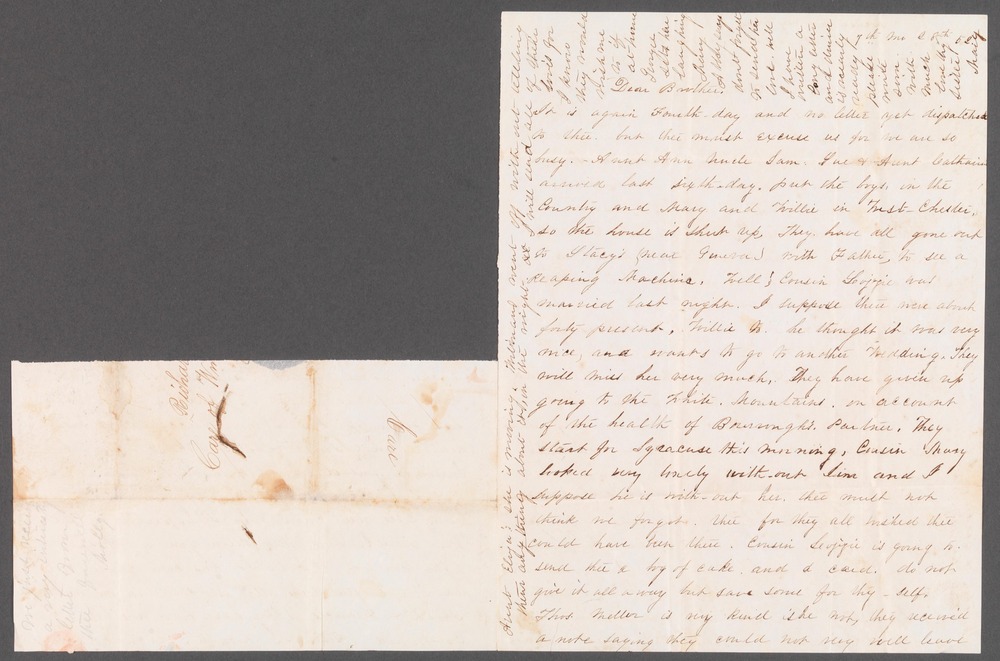 7th Mo 28th 52
Dear Brother
It is again Fourth-day and no letter yet dispatched
to thee. but thee must excuse us for we are so
busy. Aunt Ann Uncle Sam. Sue & Aunt Catharine
arrived last sixth-day. put the boys in the
Country and Mary and Willie in West-Chester,
so the house is shut up, They have all gone out
to Stacy's (near Geneva) with Father, to see a
reaping Machine. Well! Cousin Lizzie was
married last night. I suppose there were about
forty present. Willie W. he thought it was very
nice, and wants to go to another Wedding. They
will miss her very much. They have given up
going to the White Mountains on account
of the health of Burroughs Partner. They
start for Syracuse this morning, Cousin Mary
looked very lonely with-out Jim and I
suppose he is with-out her. thee must not
think we forgot thee for they all wished thee
could have been there. Cousin Lizzie is going to
send thee a box of cake and a card. do not
give it all away but save some for thy-self.
Thos Mellor is very kind is he not, they received
a note saying they could not very well leave
Aunt Eliza is moving. Husband went off with-out telling
them any thing about
will send all of their
loves for
I know
they would
wish me
to if
at home
laughing
Mary
says
dont forget
to send her
love well
I have
written a
long letter
and mine
is a
nearly
please
write
soon
with
much
love thy
sister
Mary
Richard
Care of Wm